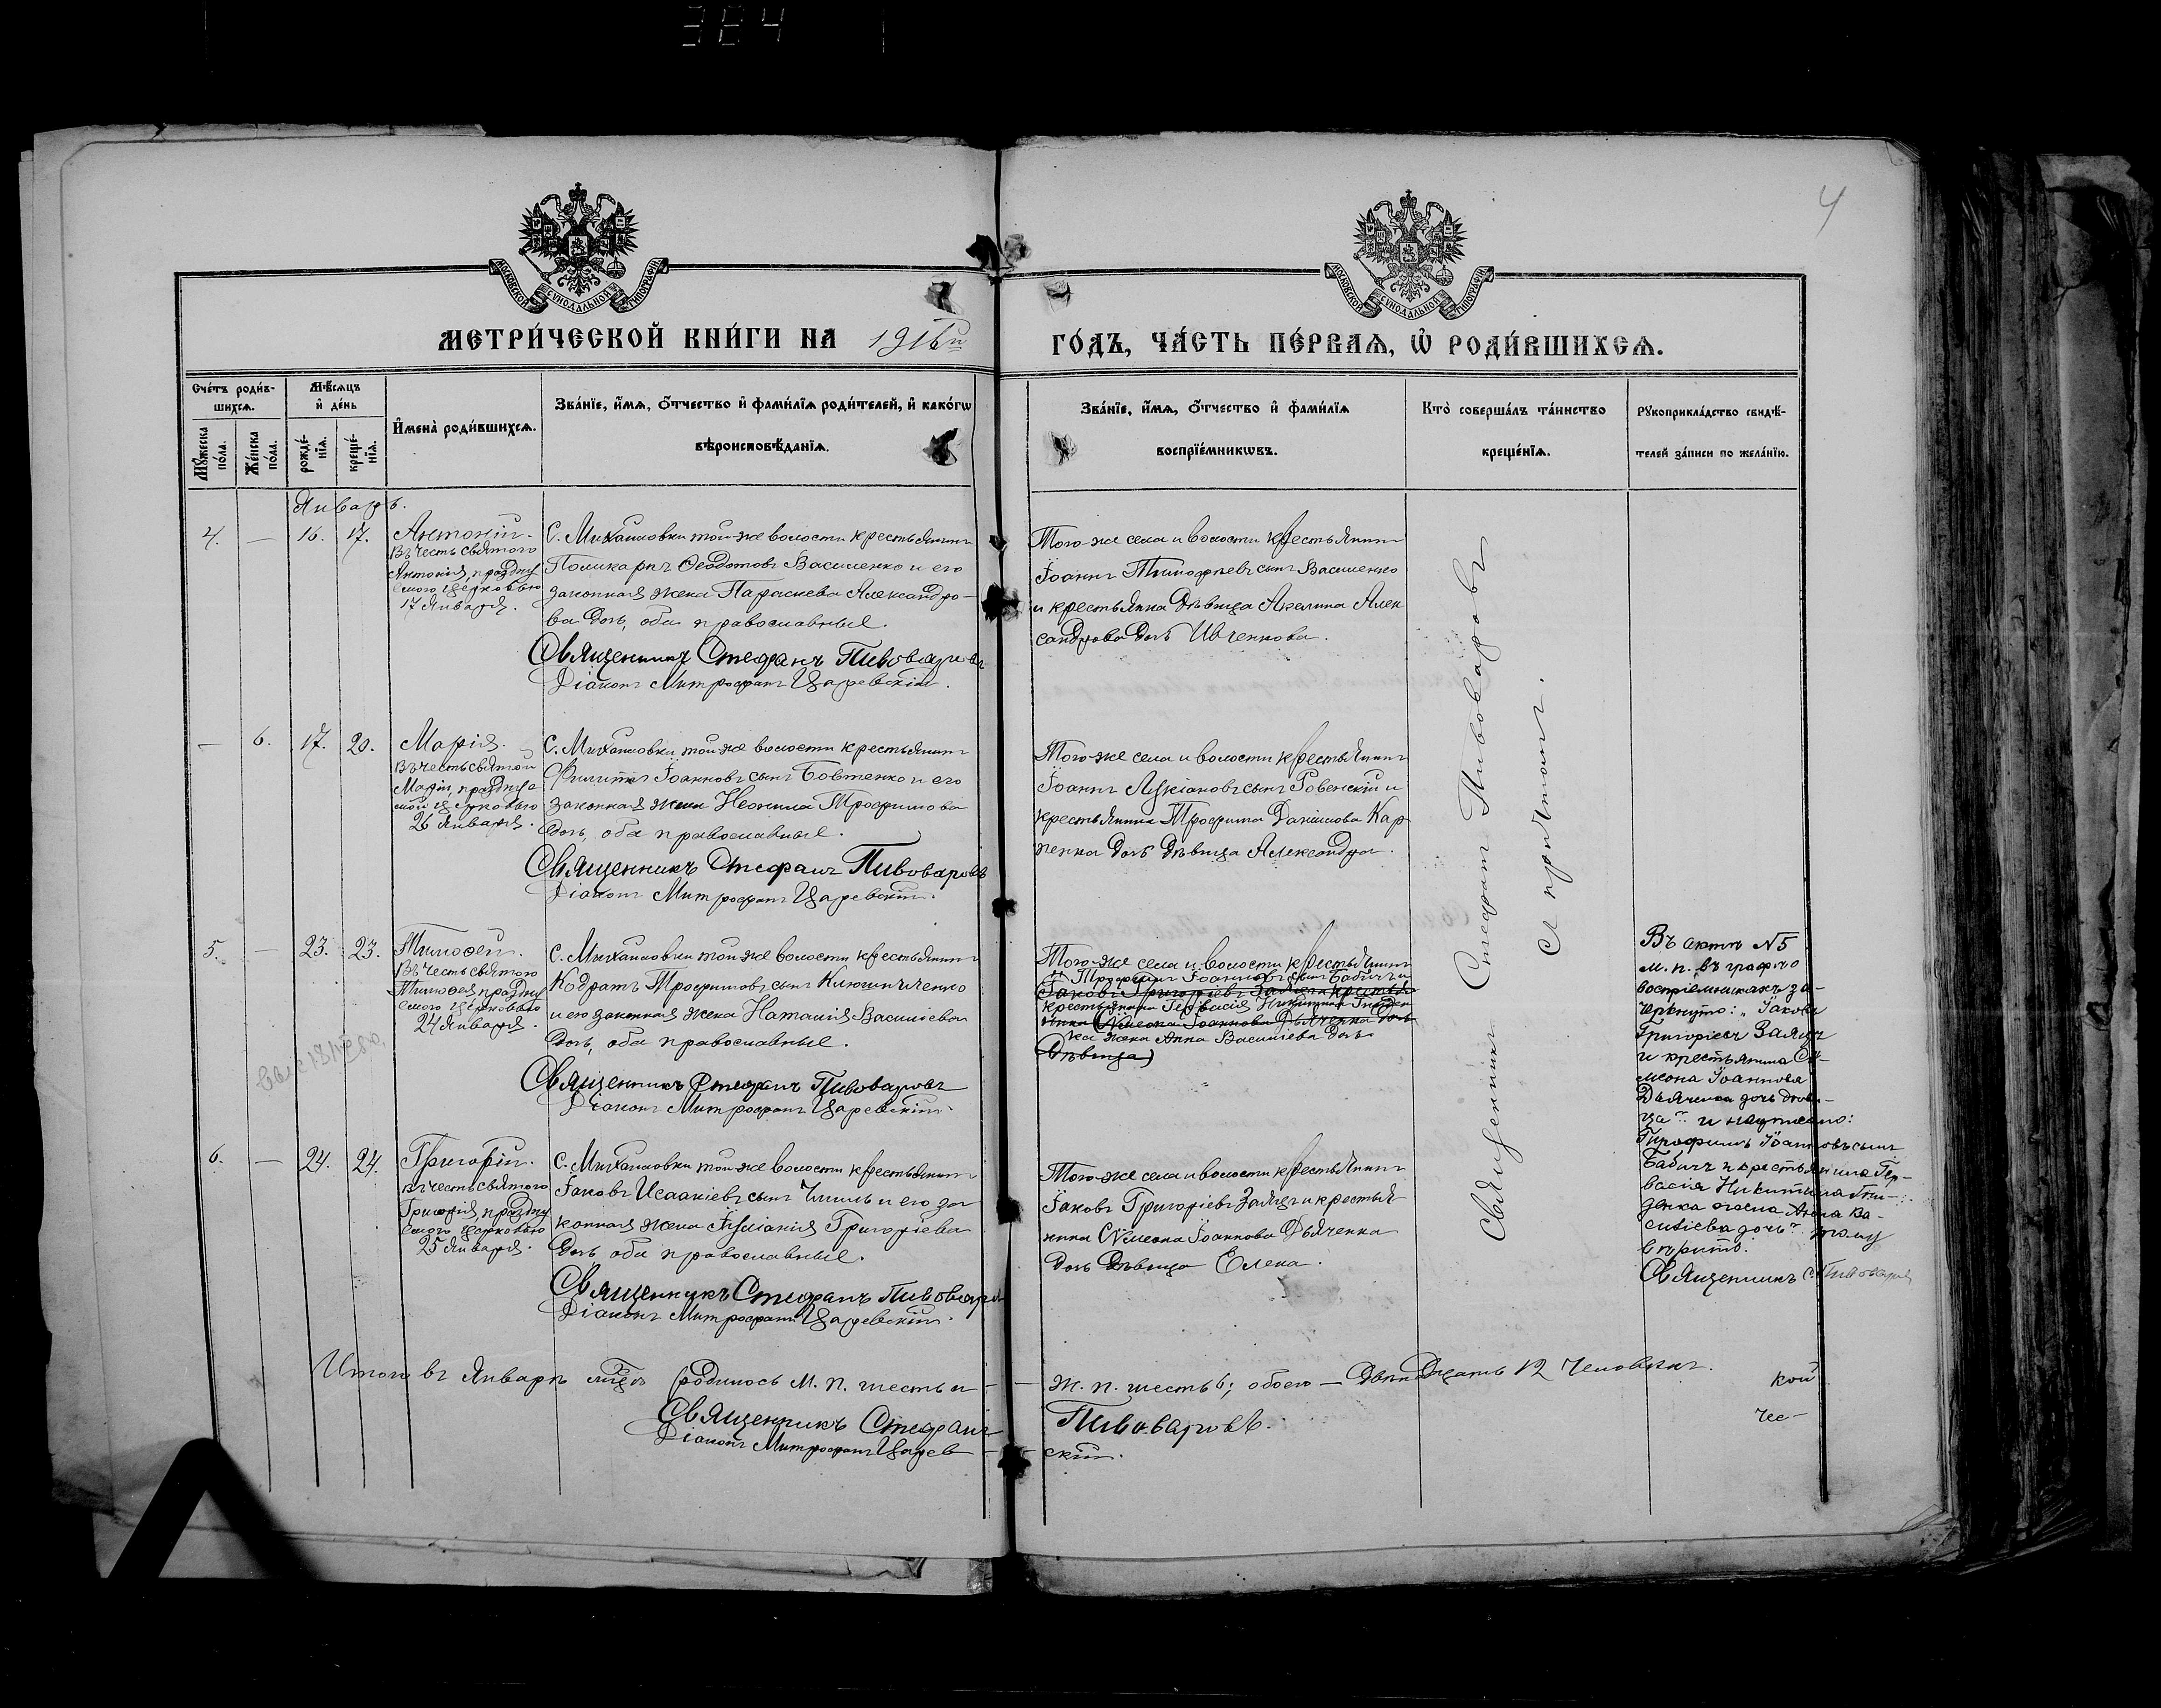 384
4
МОСКОВСКОЙ СѴНОДАЛЬНОЙ ТИПОГРАФІИ
МОСКОВСКОЙ СѴНОДАЛЬНОЙ ТИПОГРАФІИ
МЕТРИ́ЧЕСКОЙ КНИ́ГИ НА 1916й
ГО́ДЪ, ЧА́СТЬ ПЕ́РВАѦ, Ѡ҆ РОДИ́ВШИХСѦ.
Сче́тъ роди́в-
шихсѧ.
Мꙋ́жеска по́ла.
Же́нска по́ла.
Мѣ́сѧцъ
и҆ де́нь
рожде́-
нїѧ.
креще́-
нїѧ.
И҆мена̀ роди́вшихсѧ.
Зва́нїе, и҆́мѧ, ѻ҆́тчество и҆ фами́лїѧ роди́телей, и҆ како́гѡ
вѣроисповѣ́данїѧ.
Зва́нїе, и҆́мѧ, ѻ҆́тчество и҆ фами́лїѧ
воспрїе́мникѡвъ.
Кто̀ соверша́лъ та́инство
креще́нїѧ.
Рꙋкоприкла́дство свидѣ́-
телей за́писи по жела́нїю.
Январь.
4. — 16. 17. Антоній.
Въ честь святого
Антонія, праздну
емого церковью
17 Января.
С. Михайловки той-же волости крестьянинъ
Поликарпъ Ѳеодотовъ Василенко и его
законная жена Параскева Александро-
ва дочь, оба православные.
Священникъ Стефанъ Пивоваровъ
Діаконъ Митрофанъ Царевскій.
Того-же села и волости крестьянинъ
Іоаннъ Тимоѳеевъ сынъ Василенко
и крестьянка дѣвица Акелина Алек
сандрова дочь Ивченкова.
— 6. 17. 20. Марія.
Въ честь святой
Маріи, празднуе
мой церковью
26 Января.
С. Михайловки той-же волости крестьянинъ
Филиппъ Іоанновъ сынъ Бовтенко и его
законная жена Неонила Трофимова
дочь, оба православные.
Священникъ Стефанъ Пивоваровъ
Діаконъ Митрофанъ Царевскій.
Того-же села и волости крестьянинъ
Іоаннъ Лукіановъ сынъ Ровенскій и
крестьянина Трофима Даніилова Кар
пенка дочь дѣвица Александра.
5. — 23. 23. Тимоѳей.
Въ честь святого
Тимоѳея, праздну
емого церковью
24 Января.
С. Михайловки той-же волости крестьянинъ
Кодратъ Трофимовъ сынъ
и его законная жена Наталія Васильева
дочь, оба православные.
Священникъ Стефанъ Пивоваровъ
Діаконъ Митрофанъ Царевскій.
Того-же села и волости крестьянинъ
Трофимъ Іоанновъ сынъ Бабичъ и
Іаковъ Григоріевъ Заяцъ и крестья
крестьянина Гервасія Никитина
нина Сѵмеона Іоаннова Дьяченка дочь
ка жена Анна Васильева дочь
дѣвица)
Въ актѣ №5
м. п. въ графѣ о
воспріемникахъ за-
черкнуто: „Іаковъ
Григоріевъ Заяцъ
и крестьянина Сѵ-
меона Іоаннова
Дьяченка дочь дѣви-
ца" и написано:
Трофимъ Іоанновъ сынъ
Бабичъ и крестьянина Гер-
васія Никитина
жена Анна Ва-
сильева дочь" тому
вѣрить.
Священникъ С. Пивоваровъ
6. — 24. 24. Григорій.
Въ честь святого
Григорія, праздну
емого церковью
25 Января.
С. Михайловки той-же волости крестьянинъ
Іаковъ Исаакіевъ сынъ и его за
конная жена Іуліанія Григоріева
дочь оба православные.
Священникъ Стефанъ Пивоваровъ
Діаконъ Митрофанъ Царевскій.
Того-же села и волости крестьянинъ
Іаковъ Григоріевъ Заяцъ и крестья
нина Сѵмеона Іоаннова Дьяченка
дочь дѣвица Елена.
Священникъ Стефанъ Пивоваровъ
съ причтомъ.
Итого въ Январѣ мцѣ родилось м. п. шесть и — — ж. п. шесть 6; обоего — двѣнадцать 12 человѣкъ.
Священникъ Стефанъ Пивоваровъ.
Діаконъ Митрофанъ Царев — скій.
кой
чес-